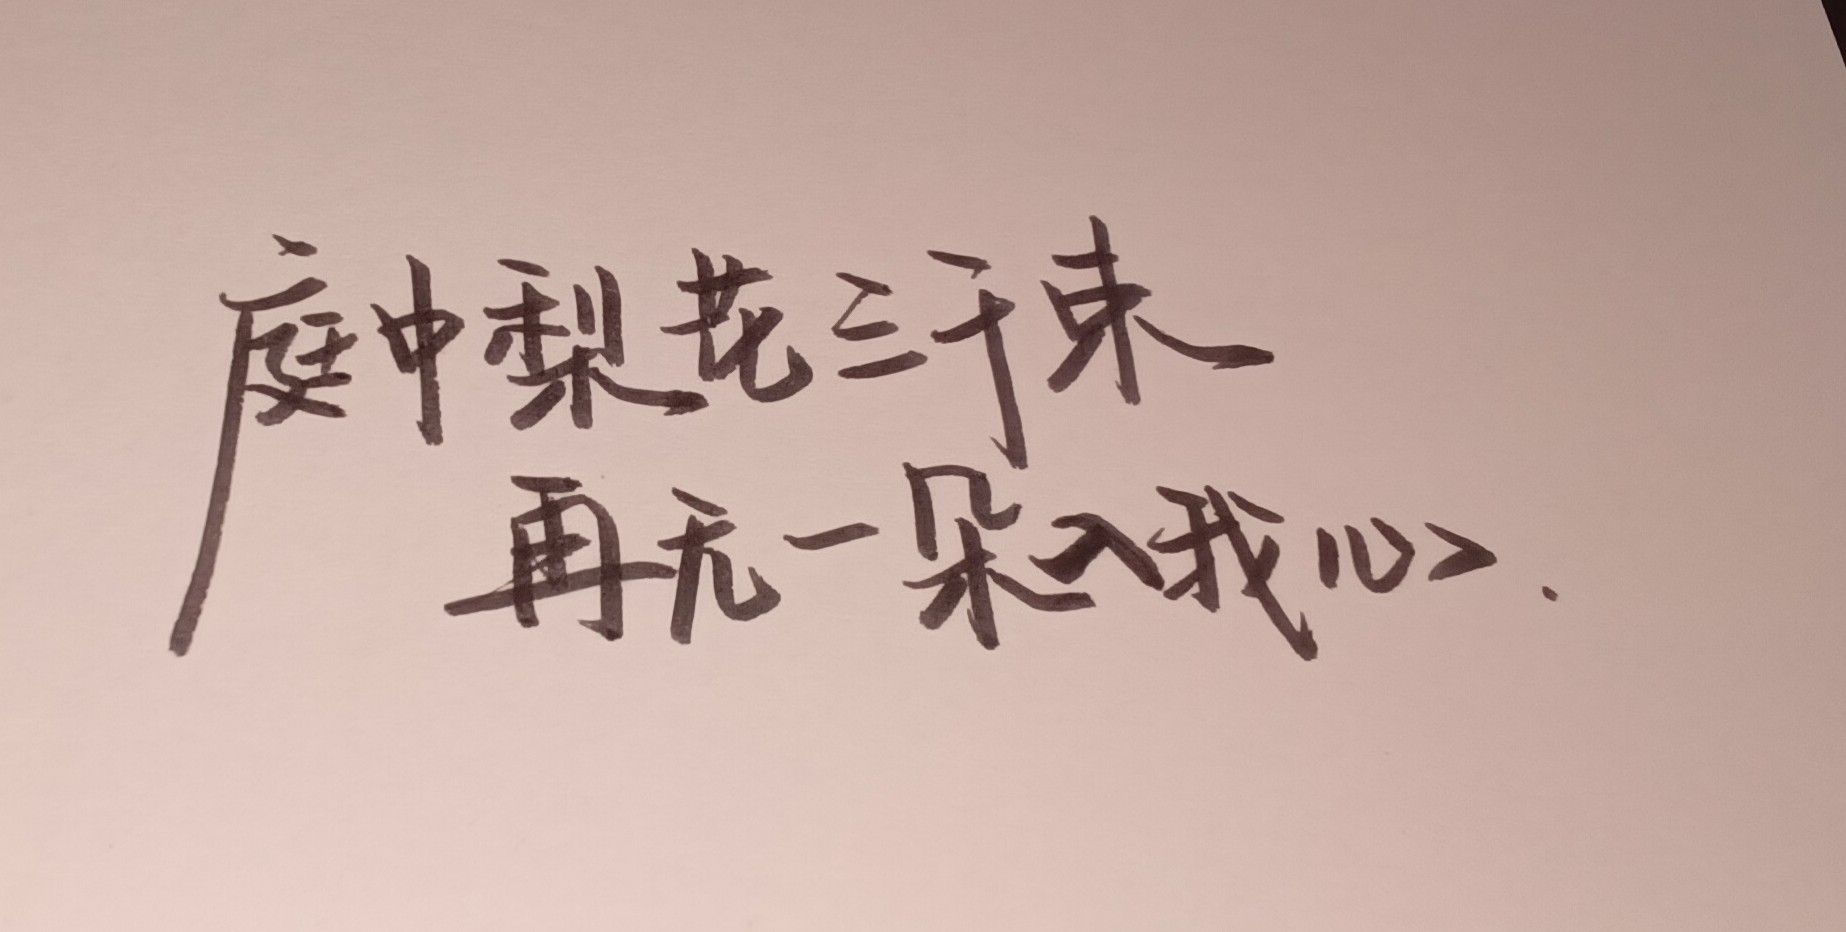 庭中梨花三千束
再无一朵入我心.